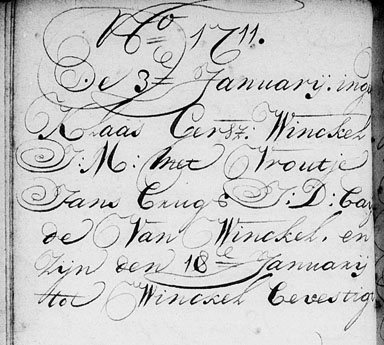 Ao 1711.
De 3e Januarij. inge
Klaas Cersz: Winckel
J: M: met Vroutje
Jans Crugs J: D: bay
de Van Winckel. en
zijn den 18e Januarij
tot Winckel bevestig